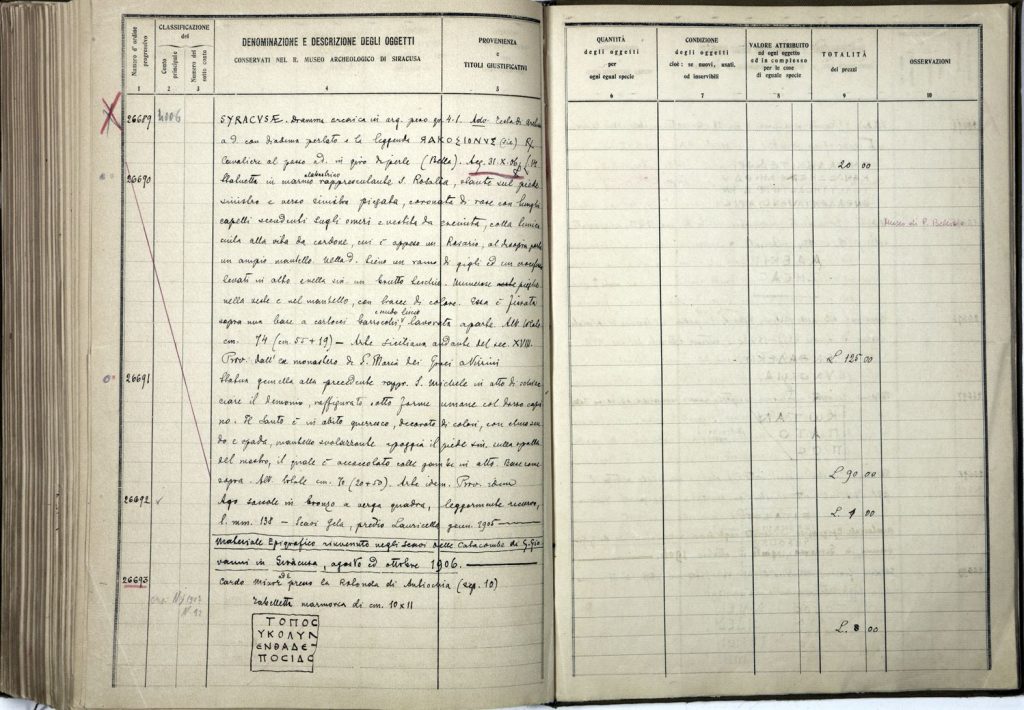 Numero d'ordine progressivo
CLASSIFICAZIONE del
Conto principale
Numero del sotto conto
DENOMINAZIONE E DESCRIZIONE DEGLI OGGETTI
CONSERVATI NEL R. MUSEO ARCHEOLOGICO DI SIRACUSA
PROVENIENZA e TITOLI GIUSTIFICATIVI
1 2 3 4 5
26689 SYRACUSÆ. Dramma arcaica in arg. peso gr. 4.1. Adv. Testa di
a d. con diadema perlato e la leggenda (sic) R).
Cavaliere al passo a d. in giro di perle (Bella). Acq. 31.X.06
26690 Statuetta in marmo alabastrino rappresentante S. Rosalia, stante sul piede
sinistro e verso sinistra piegata, coronata di rose con lunghi
capelli scendenti sugli omeri e vestita da, colla tunica
alla vita da cordone, cui è appeso un Rosario, al disopra porta
un ampio mantello. Nella d. tiene un ramo di gigli ed un
levati in alto e nella sin. un teschio. Numerose pieghe
nella veste e nel mantello, con tracce di colore. Essa è fissata
sopra una base a cartocci barrocchi, lavorata a parte. Alt. totale
cm. 74 (cm. 55 + 19) — Arte siciliana andante del sec. XVIII.
Prov. dall' ex monastero di S. Maria dei Greci a Vizzini
26691 Statua gemella alla precedente rappr. S. Michele in atto di
ciare il demonio, raffigurato sotto forme umane col dorso
no. Il Santo è in abito guerresco, decorato di colori, con elmo scu-
do e spada, mantello svolazzante e poggia il piede sin. sulla spalla
del mostro, il quale è accoccolato colle gambe in alto. Base come
sopra. Alt. totale cm. 70 (20+50). Arte idem. Prov. idem
26692 Ago saccale in bronzo a verga quadra, leggermente ricurvo,
l. mm. 138 — Scavi Gela, predio Lauricella genn. 1905
Materiale Epigrafico rinvenuto negli Scavi delle Catacombe di S. Gio-
vanni in Siracusa, agosto ed ottobre 1906.
26693 Cardo minore presso la Rotonda di Antiochia (sep. 10)
Tabelletta marmorea di cm. 10 x 11
ΤΟΠΟС
ΥΚΟΛΥΛ
ΕΝΘΑΔΕ
ΠΟСΙΔС
QUANTITÀ degli oggetti per ogni egual specie
CONDIZIONE degli oggetti cioè: se nuovi, usati, od inservibili
VALORE ATTRIBUITO ad ogni oggetto ed in complesso per le cose di eguale specie
TOTALITÀ dei prezzi
OSSERVAZIONI
6 7 8 9 10
20 00
Museo di P. Bellomo
L. 125 00
L. 90 00
L. 1 00
L. 8 00